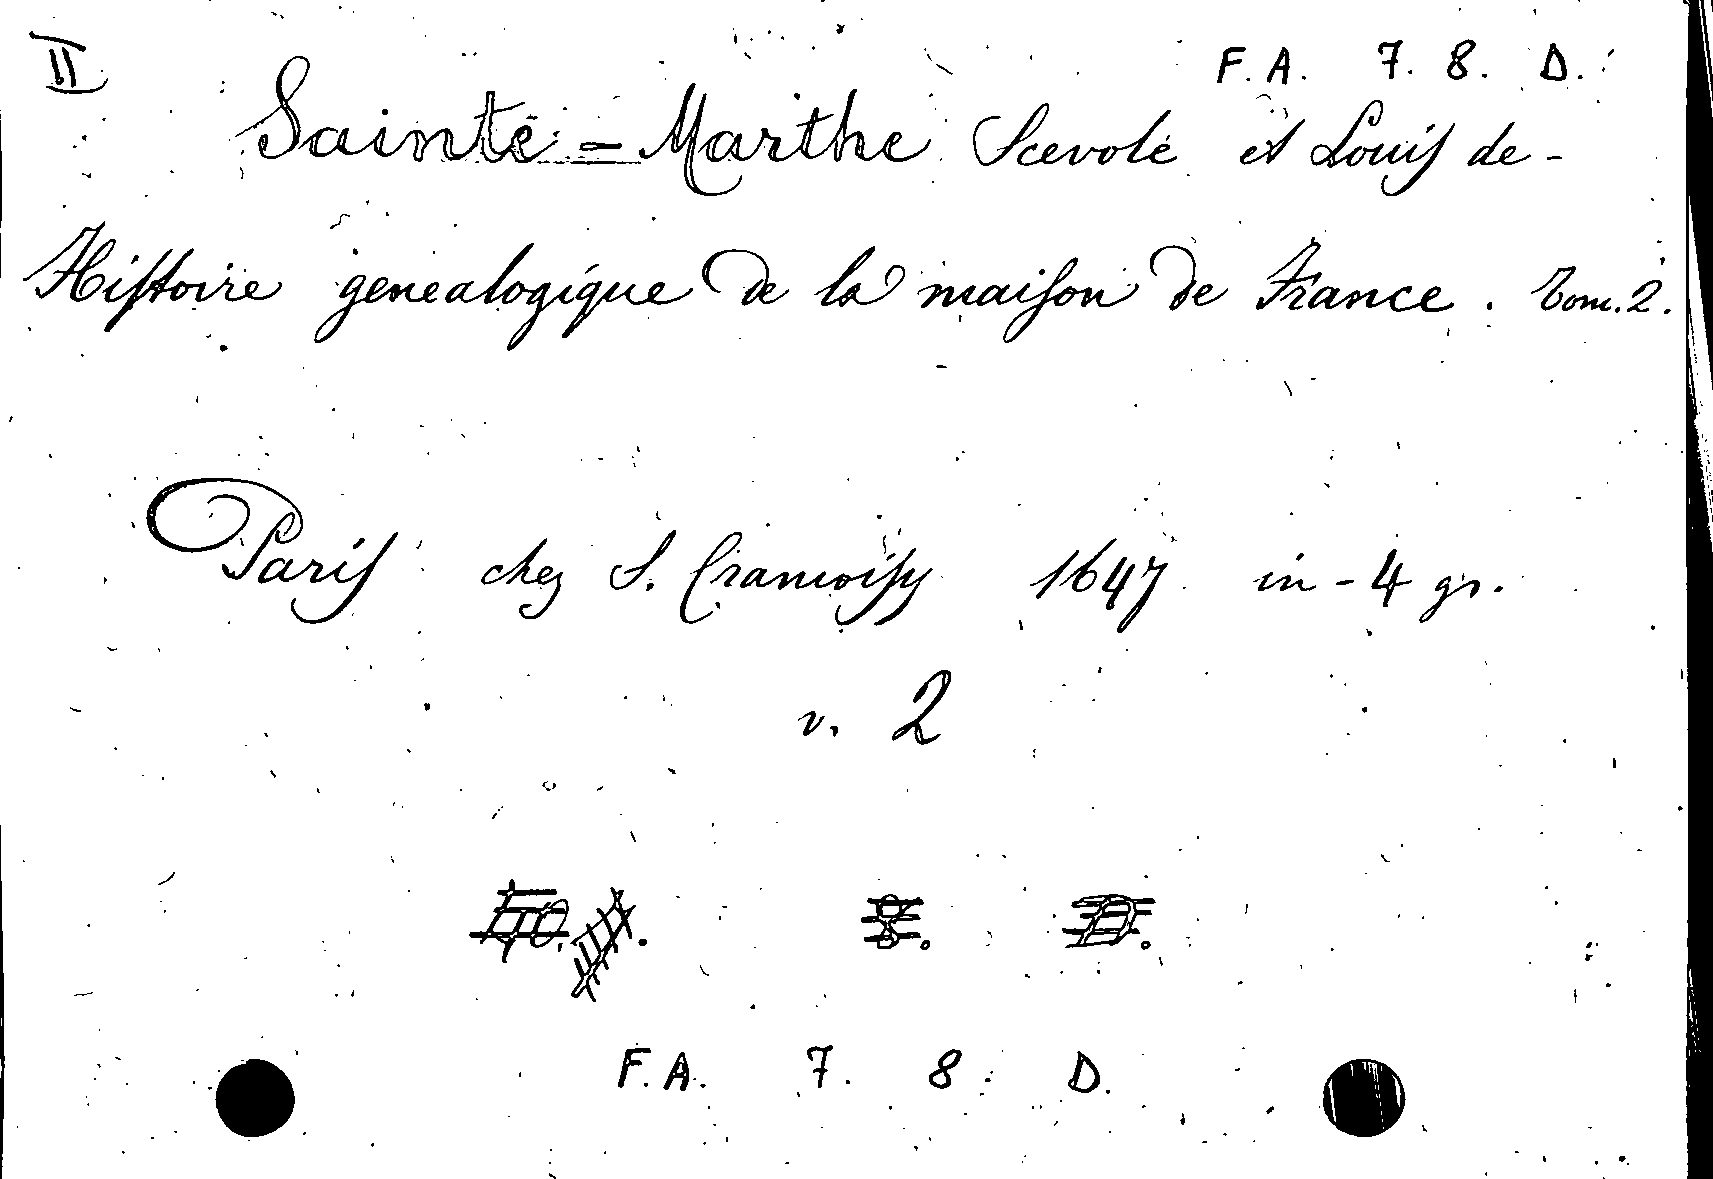 II
F. A. 7. 8. D.
Sainte-Marthe Scevole et Louis de-
Histoire genealogique de la maison de France. Tom. 2.
Paris chez S. Cramoisy 1647 in-4 gr.
v. 2
8. D.
F. A. 7. 8 D.